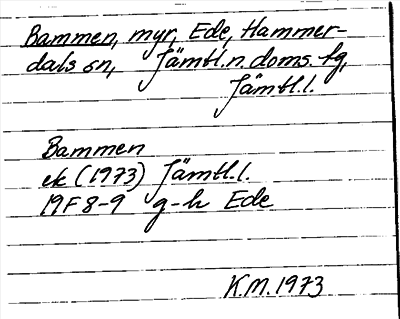 Bammen, myr, Ede, Hammer-
dals sn, Jämtl.n.doms.-fg,
Jämtl.l.
Bammen
ek (1973) Jämtl.l.
19F 8-9 g-h Ede
K.M. 1973